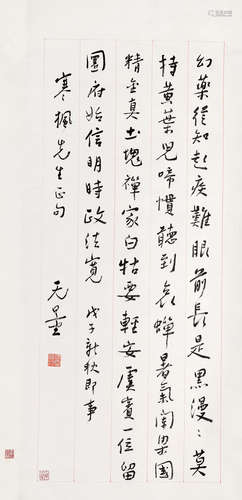 幻藥從知起疾難眼前長是黑漫〻莫
持黃葉兒啼慣聽到哀蟬暑氣闌果園
精金真土塊禪家白牯要輕安虞賓一位留
園府始信明時政法寬 戊子新秋即事
寒楓先生正句
无量